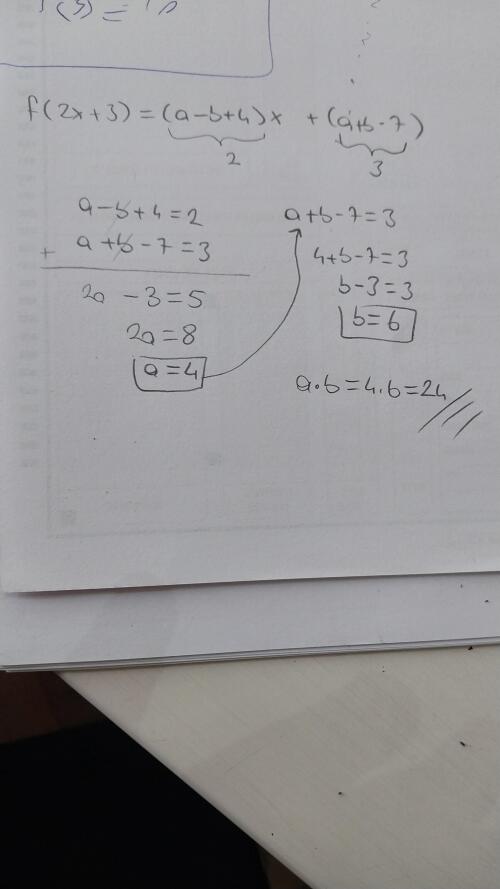 f(2x+3) = (a-b+4)x + (a+b-7)
2 3
a-b+4=2
+ a+b-7=3
2a -3=5
2a=8
a=4
a+b-7=3
4+b-7=3
b-3=3
b=6
a.b=4.6=24